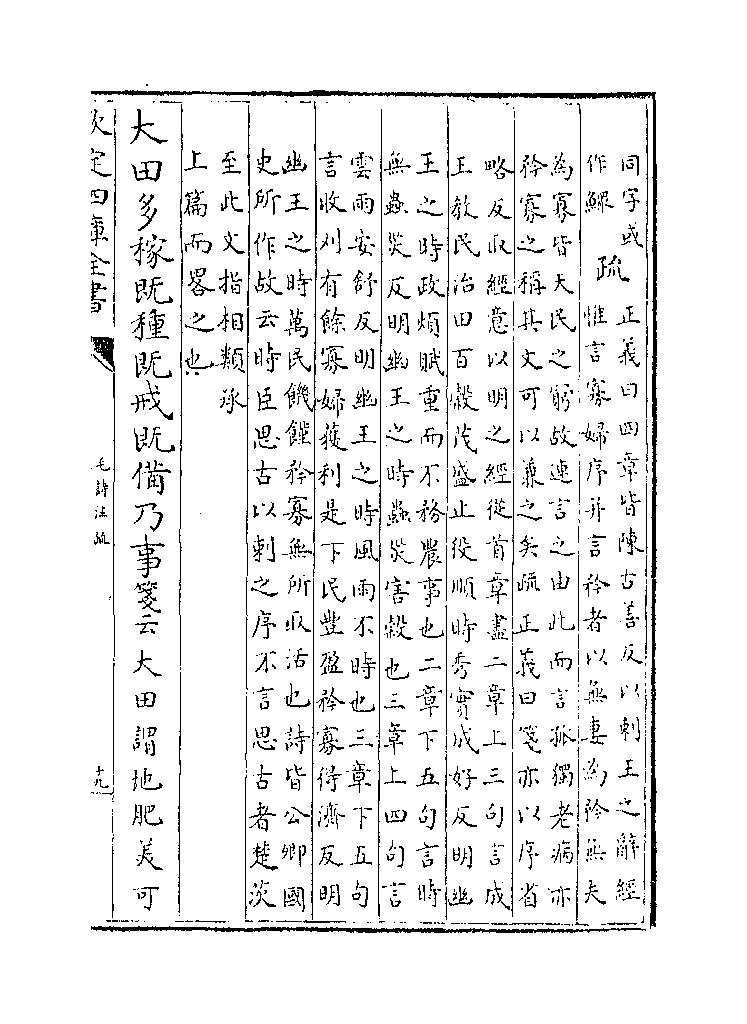 同字或
作鰥
疏
正義曰四章皆陳古善反以刺王之辭經
惟言寡婦序并言矜者以無妻為矜無夫
為寡皆天民之窮故連言之由此而言孤獨老病亦
矜寡之稱其文可以兼之矣疏正義曰箋亦以序省
略反取經意以明之經從首章盡二章上三句言成
王教民治田百穀茂盛止役順時秀實成好反明幽
王之時政煩賦重而不務農事也二章下五句言時
無蟲災反明幽王之時蟲災害穀也三章上四句言
雲雨安舒反明幽王之時風雨不時也三章下五句
言收刈有餘寡婦獲利是下民豐盈矜寡得濟反明
幽王之時萬民饑饉矜寡無所取活也詩皆公卿國
史所作故云時臣思古以刺之序不言思古者楚茨
至此文指相類承
上篇而畧之也
大田多稼既種既戒既備乃事箋云大田謂地肥美可
欽定四庫全書
毛詩注疏
十九